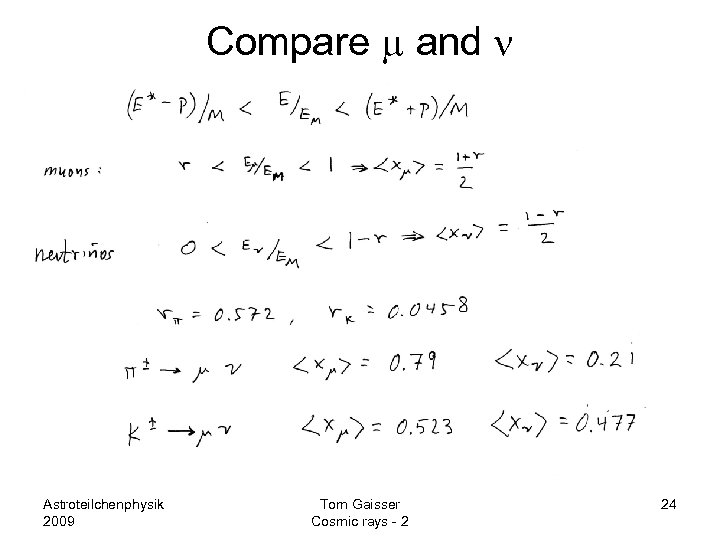 Compare μ and ν
(E* - P)/M < E/E_M < (E* + P)/M
muons: r < E_μ/E_M < 1 ⇒ <x_μ> = (1+r)/2
neutriños 0 < E_ν/E_M < 1-r ⇒ <x_ν> = (1-r)/2
r_π = 0.572, r_K = 0.0458
π± → μ ν <x_μ> = 0.79 <x_ν> = 0.21
K± → μν <x_μ> = 0.523 <x_ν> = 0.477
Astroteilchenphysik 2009
Tom Gaisser
Cosmic rays - 2
24